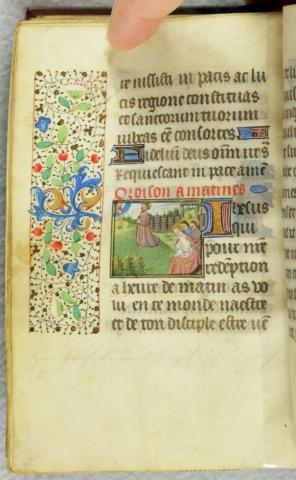 te iussisti in pacis ac lu
cis regione constituas
et sanctorum tuorum
iubeas eē consortes.
Fidelium deus omīu ꝯ
Requiescant in pace amē
Oroison a matines
Ihesus
qui
pour nr̄e
redēption
a heure de matin as vo
lu en ce monde naestre
et de ton disciple estre vē